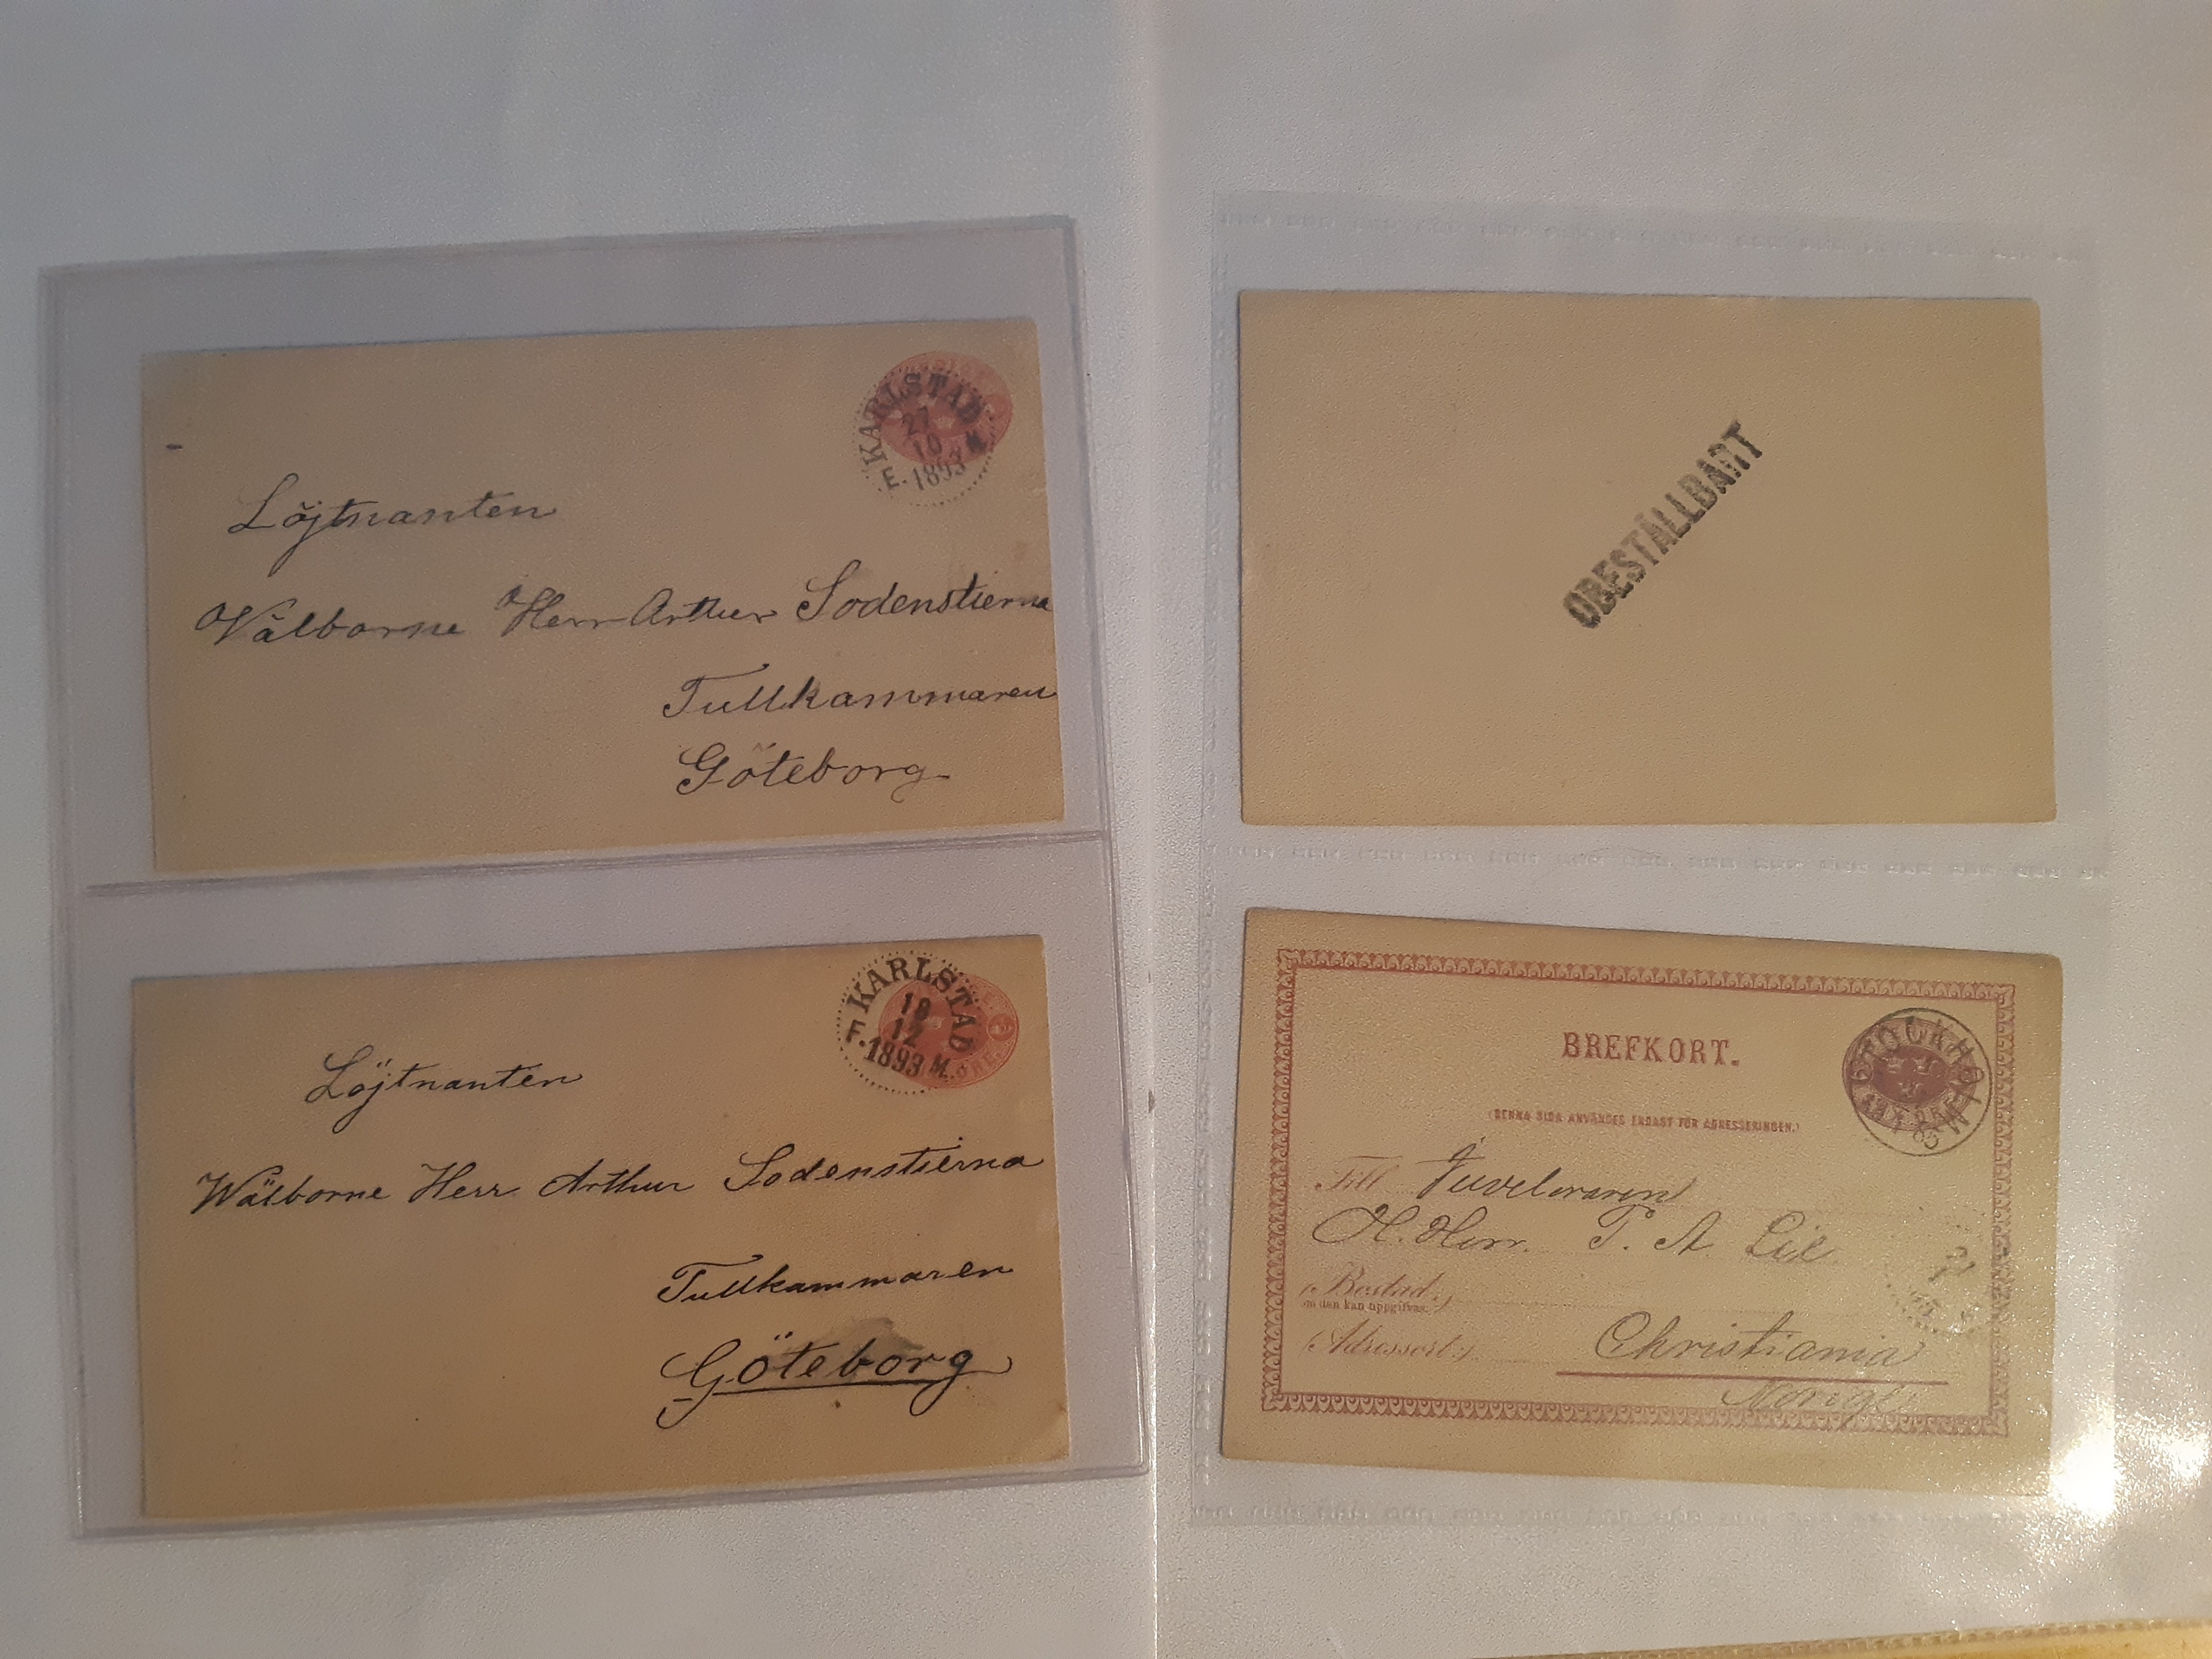 KARLSTAD
27
10
1893
Löjtnanten
Wälborne Herr Arthur Sodenstierna
Tullkammaren
Göteborg
KARLSTAD
19
12
F. 1893 M.
Löjtnanten
Wälborne Herr Arthur Sodenstierna
Tullkammaren
Göteborg
OBESTÄLLBART
BREFKORT.
STOCKHOLM
(DENNA SIDA ANVÄNDES ENDAST FÖR ADRESSERINGEN.)
Till Juveleraren
H. Herr. T. A. Lie
(Bostad,)
om den kan uppgifvas.
(Adressort:) Christiania
Norige